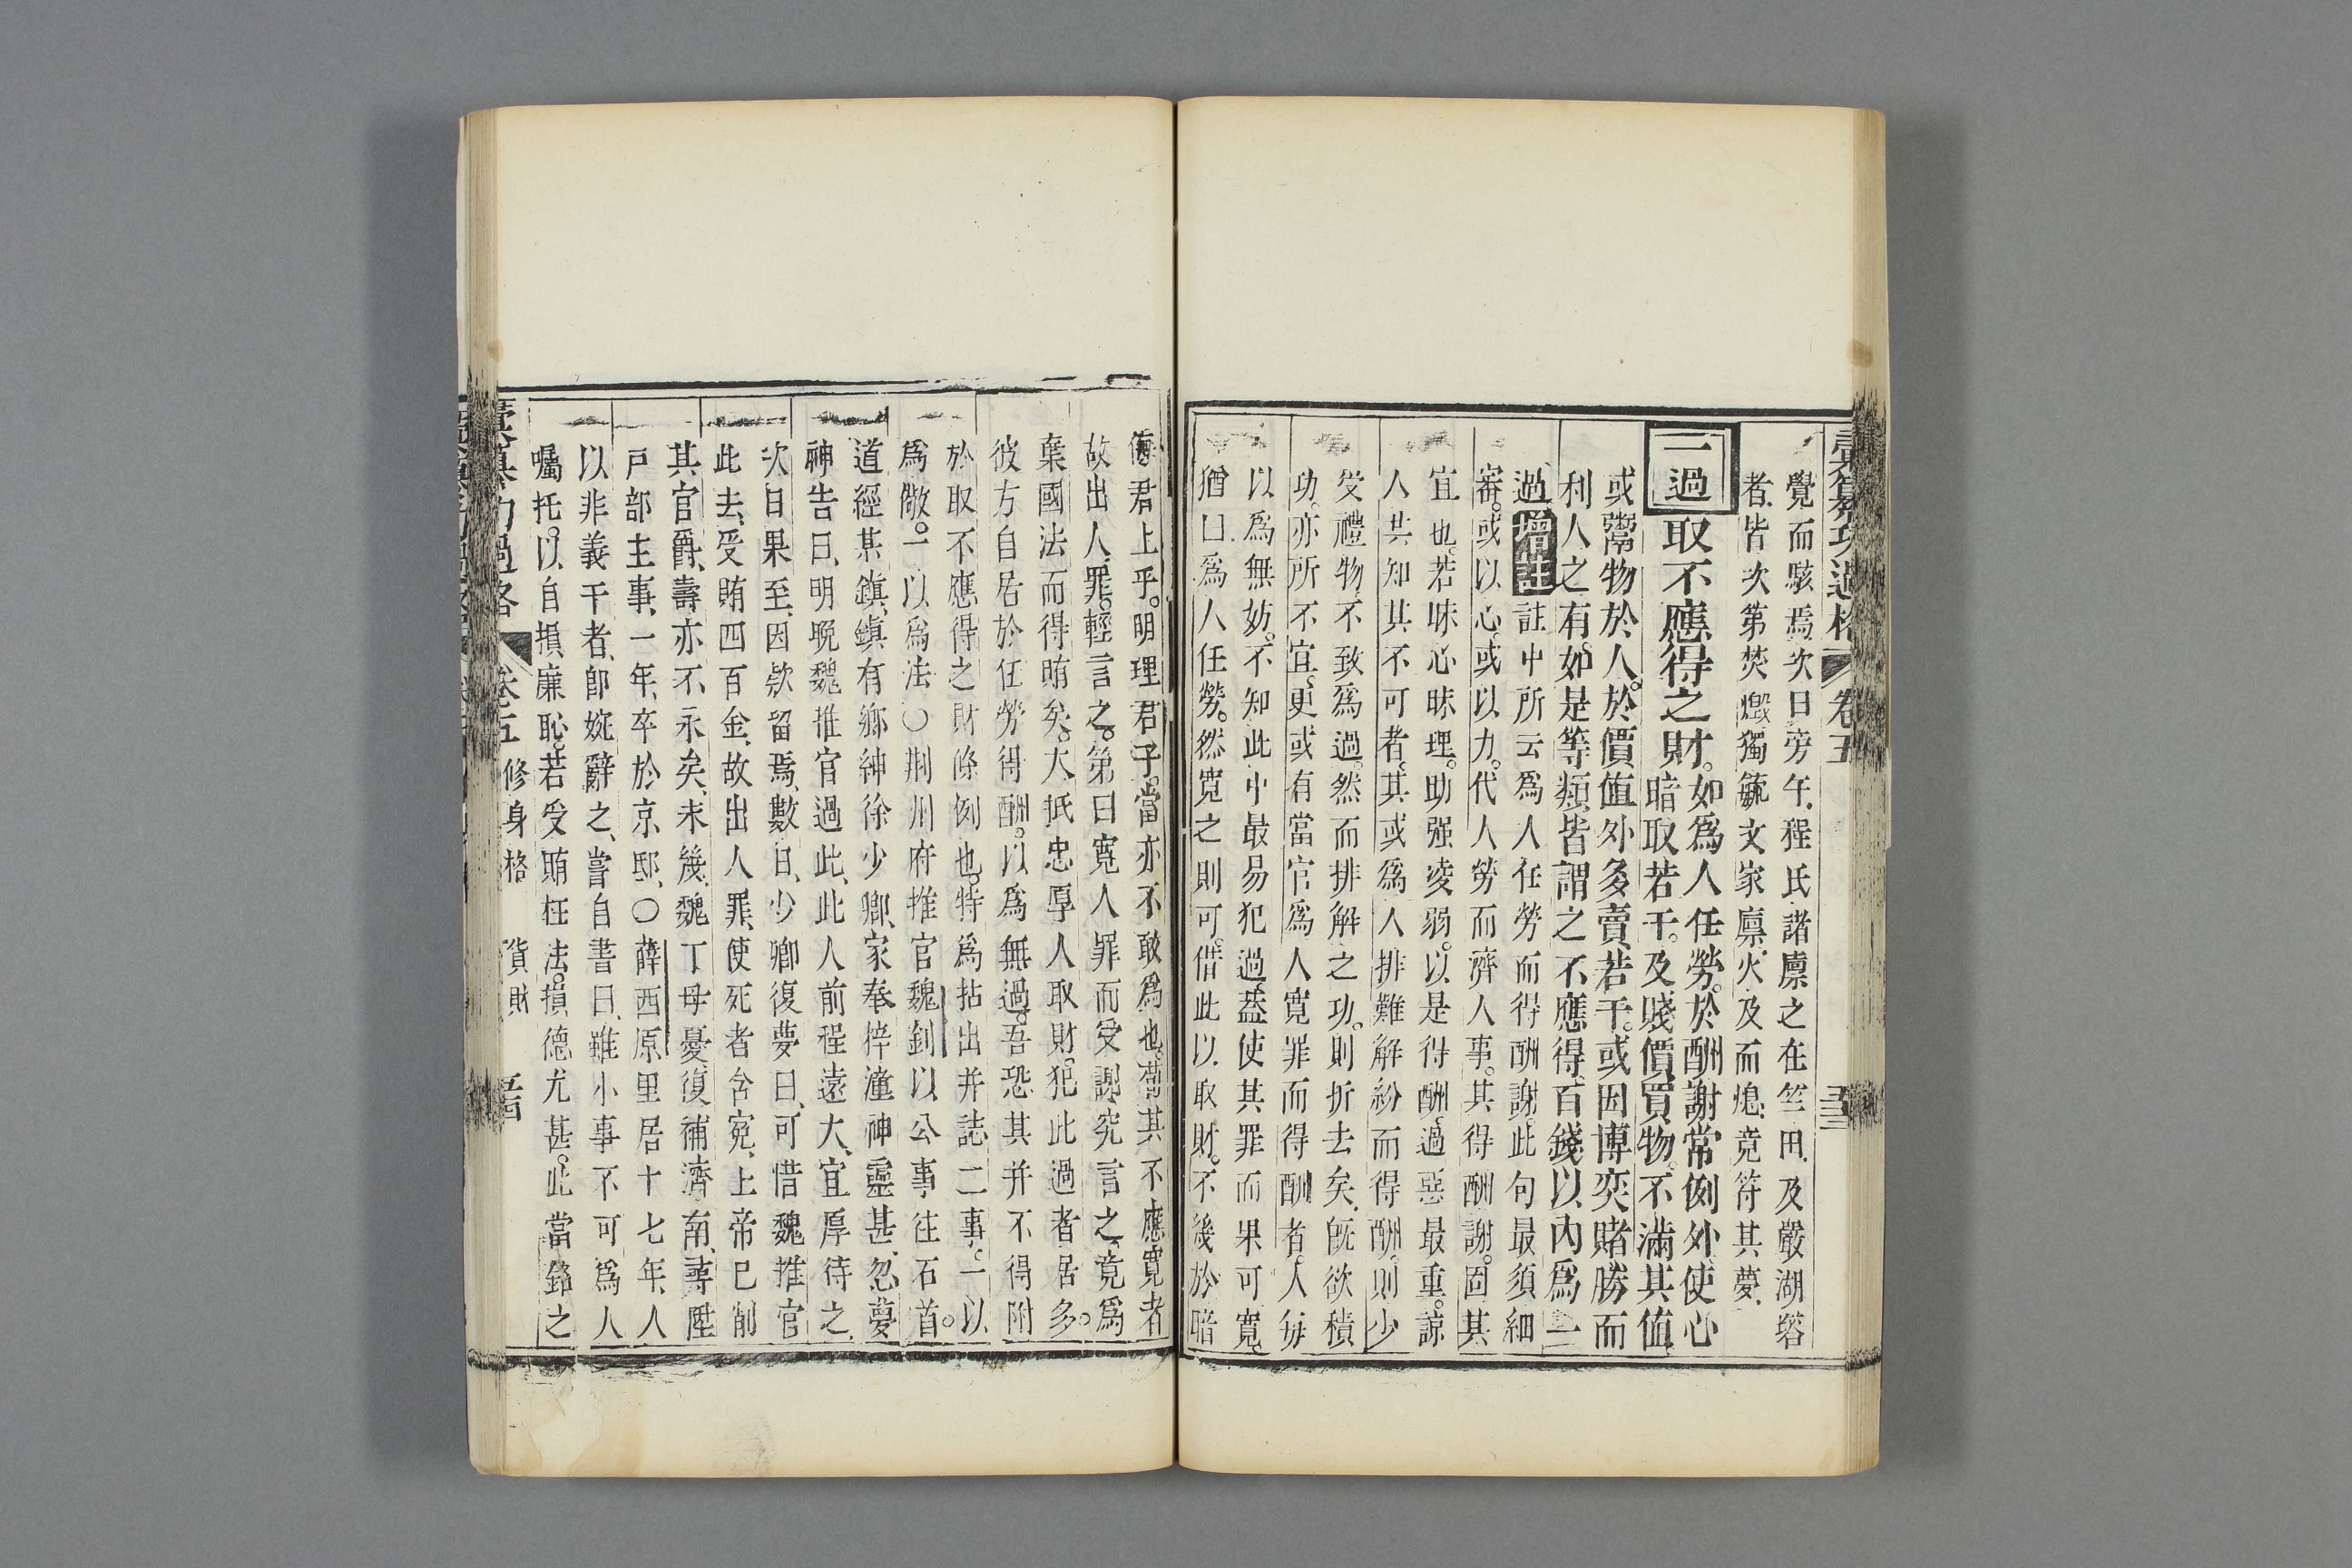 彙纂功過格 卷五
覺而駭焉次日旁午程氏諸廪之在竺田及嚴湖塔
者皆次第焚燬獨毓文家廪火及而熄竟符其夢
一過 取不應得之財。如爲人任勞。於酬謝常例外使心
暗取若干。及賤價買物。不滿其值
或鬻物於人。於價值外多賣若干。或因博奕賭勝而
利人之有。如是等類皆謂之不應得百錢以內爲一
過 增註 註中所云爲人任勞而得酬謝此句最須細
審。或以心。或以力。代人勞而濟人事。其得酬謝。固其
宜也。若昧心昧理。助强凌弱。以是得酬。過惡最重。諒
人共知其不可者。其或爲人排難解紛而得酬。則少
受禮物不致爲過。然而排解之功。則折去矣。旣欲積
功。亦所不宜。更或有當官爲人寬罪而得酬者。人每
以爲無妨。不知此中最易犯過。葢使其罪而果可寬。
猶曰爲人任勞。然寬之則可。借此以取財。不幾於暗
侮君上乎。明理君子。當亦不敢爲也。若其不應寬者
故出人罪。輕言之。第曰寬人罪而受謝。究言之。竟爲
棄國法而得賄矣。大抵忠厚人取財。犯此過者居多。
彼方自居於任勞得酬。以爲無過。吾恐其并不得附
於取不應得之財條例也。特爲拈出并誌二事。一以
爲儆。一以爲法〇荆州府推官魏釗以公事往石首。
道經某鎮鎮有鄉紳徐少卿家奉梓潼神靈甚忽夢
神告曰明晚魏推官過此此人前程遠大宜厚待之
次日果至因欵留焉數日少卿復夢曰可惜魏推官
此去受賄四百金故出人罪使死者含寃上帝已削
其官爵壽亦不永矣未幾魏丁母憂復補濟南尋陞
戸部主事一年卒於京邸〇薛西原里居十七年人
以非義干者卽婉辭之嘗自書曰雖小事不可爲人
囑托。以自損廉恥。若受賄枉法。損德尤甚。此當銘之
彙纂功過格 卷五 修身格 貨財